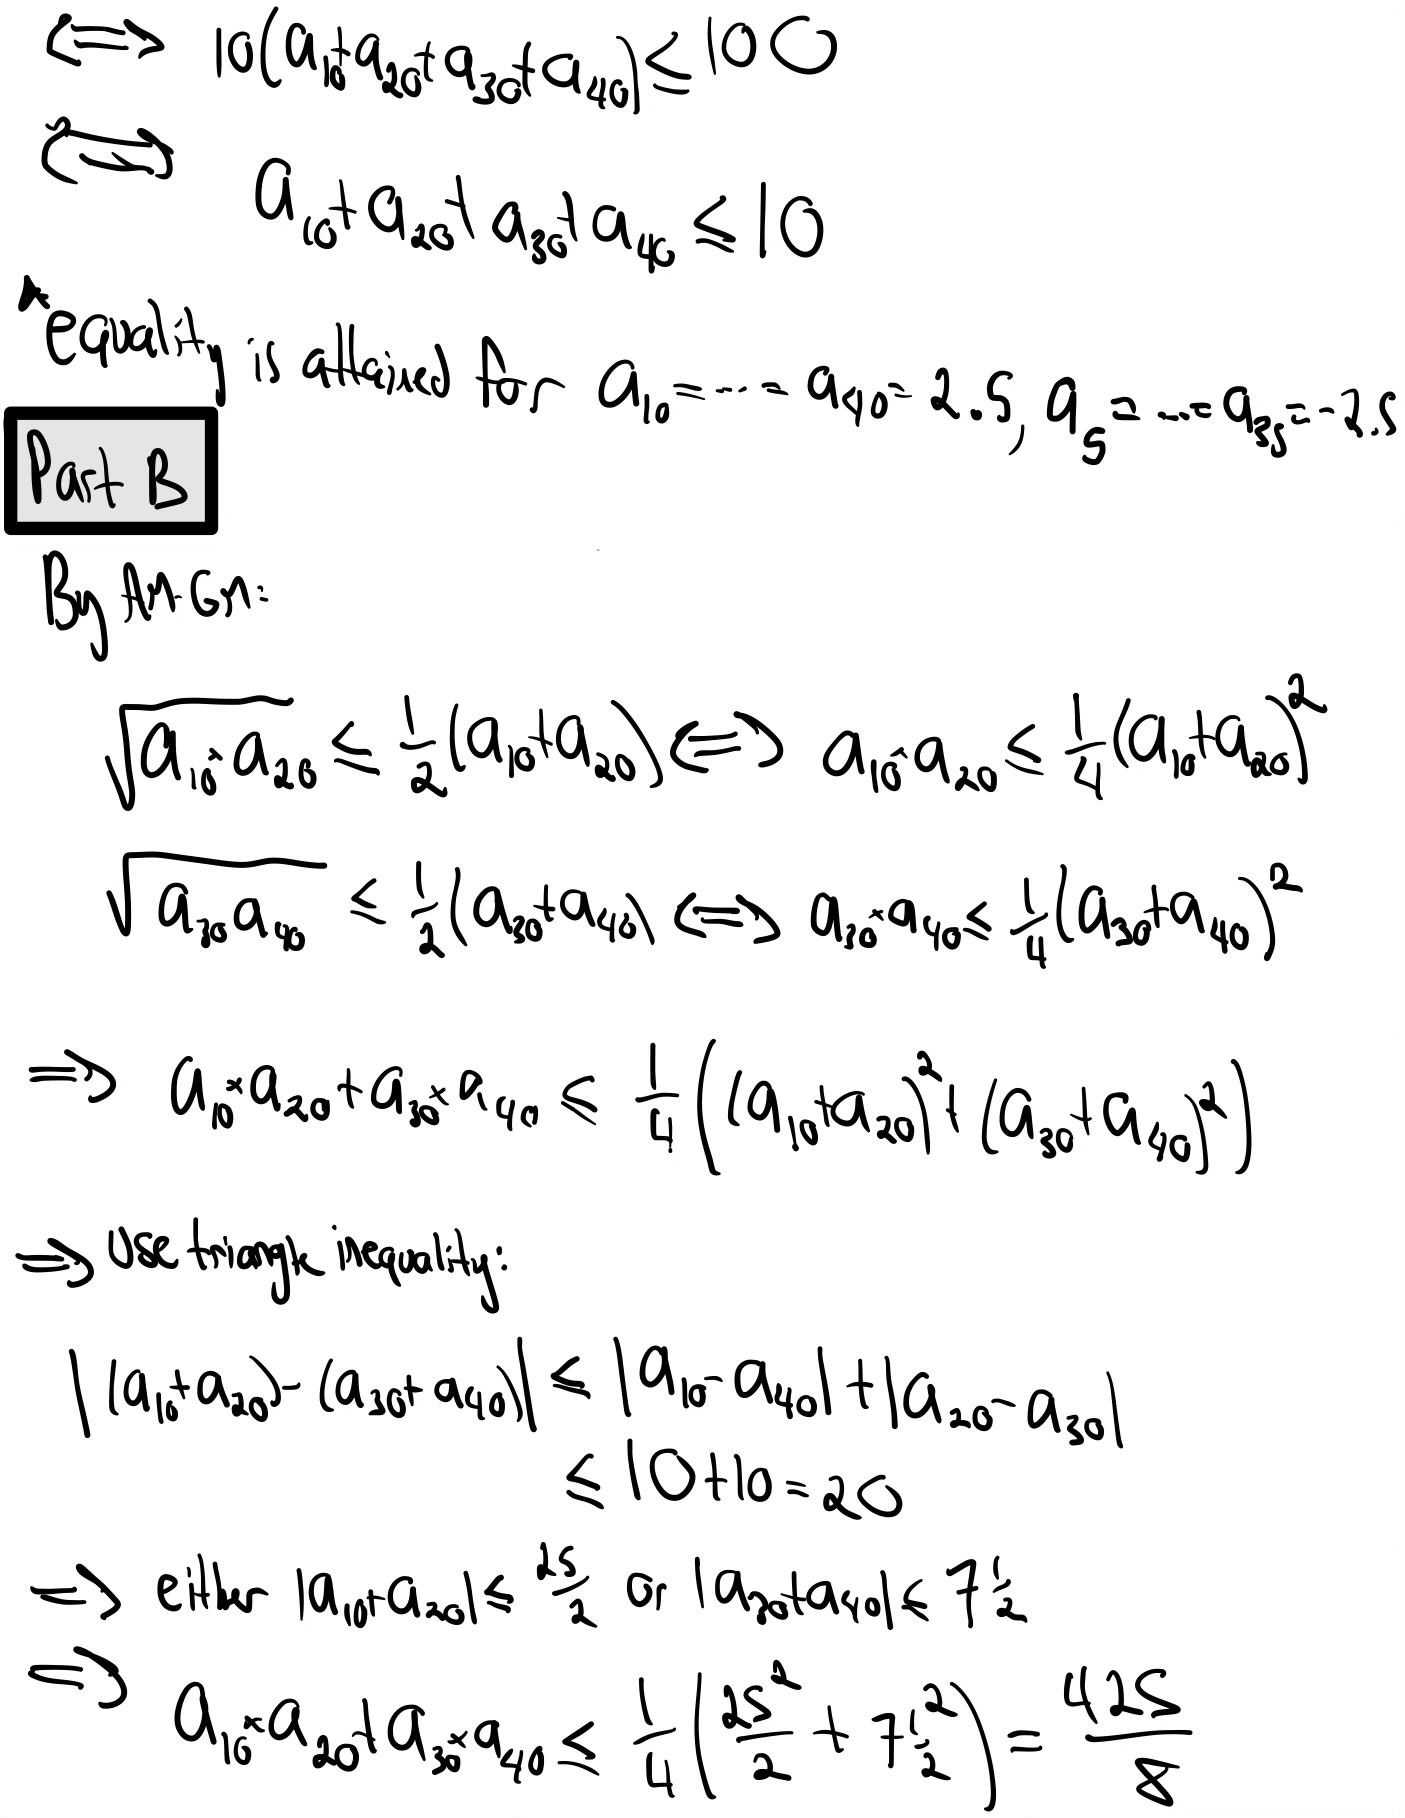 ⟺ 10(a₁₀+a₂₀+a₃₀+a₄₀)≤100
⟺ a₁₀+a₂₀+a₃₀+a₄₀≤10
*equality is attained for a₁₀=...=a₄₀=2.5, a₅=...=a₃₅=-2.5
Part B
By AM-GM:
√(a₁₀×a₂₀) ≤ 1/2(a₁₀+a₂₀) ⟺ a₁₀×a₂₀ ≤ 1/4(a₁₀+a₂₀)²
√(a₃₀a₄₀) ≤ 1/2(a₃₀+a₄₀) ⟺ a₃₀×a₄₀ ≤ 1/4(a₃₀+a₄₀)²
⟹ a₁₀×a₂₀+a₃₀×a₄₀ ≤ 1/4((a₁₀+a₂₀)²+(a₃₀+a₄₀)²)
⟹ Use triangle inequality:
|(a₁₀+a₂₀)-(a₃₀+a₄₀)| ≤ |a₁₀-a₄₀|+|a₂₀-a₃₀|
≤ 10+10=20
⟹ either |a₁₀+a₂₀|≤ 25/2 or |a₃₀+a₄₀|≤ 7 1/2
⟹ a₁₀×a₂₀+a₃₀×a₄₀ ≤ 1/4(25/2² + 7 1/2²) = 425/8